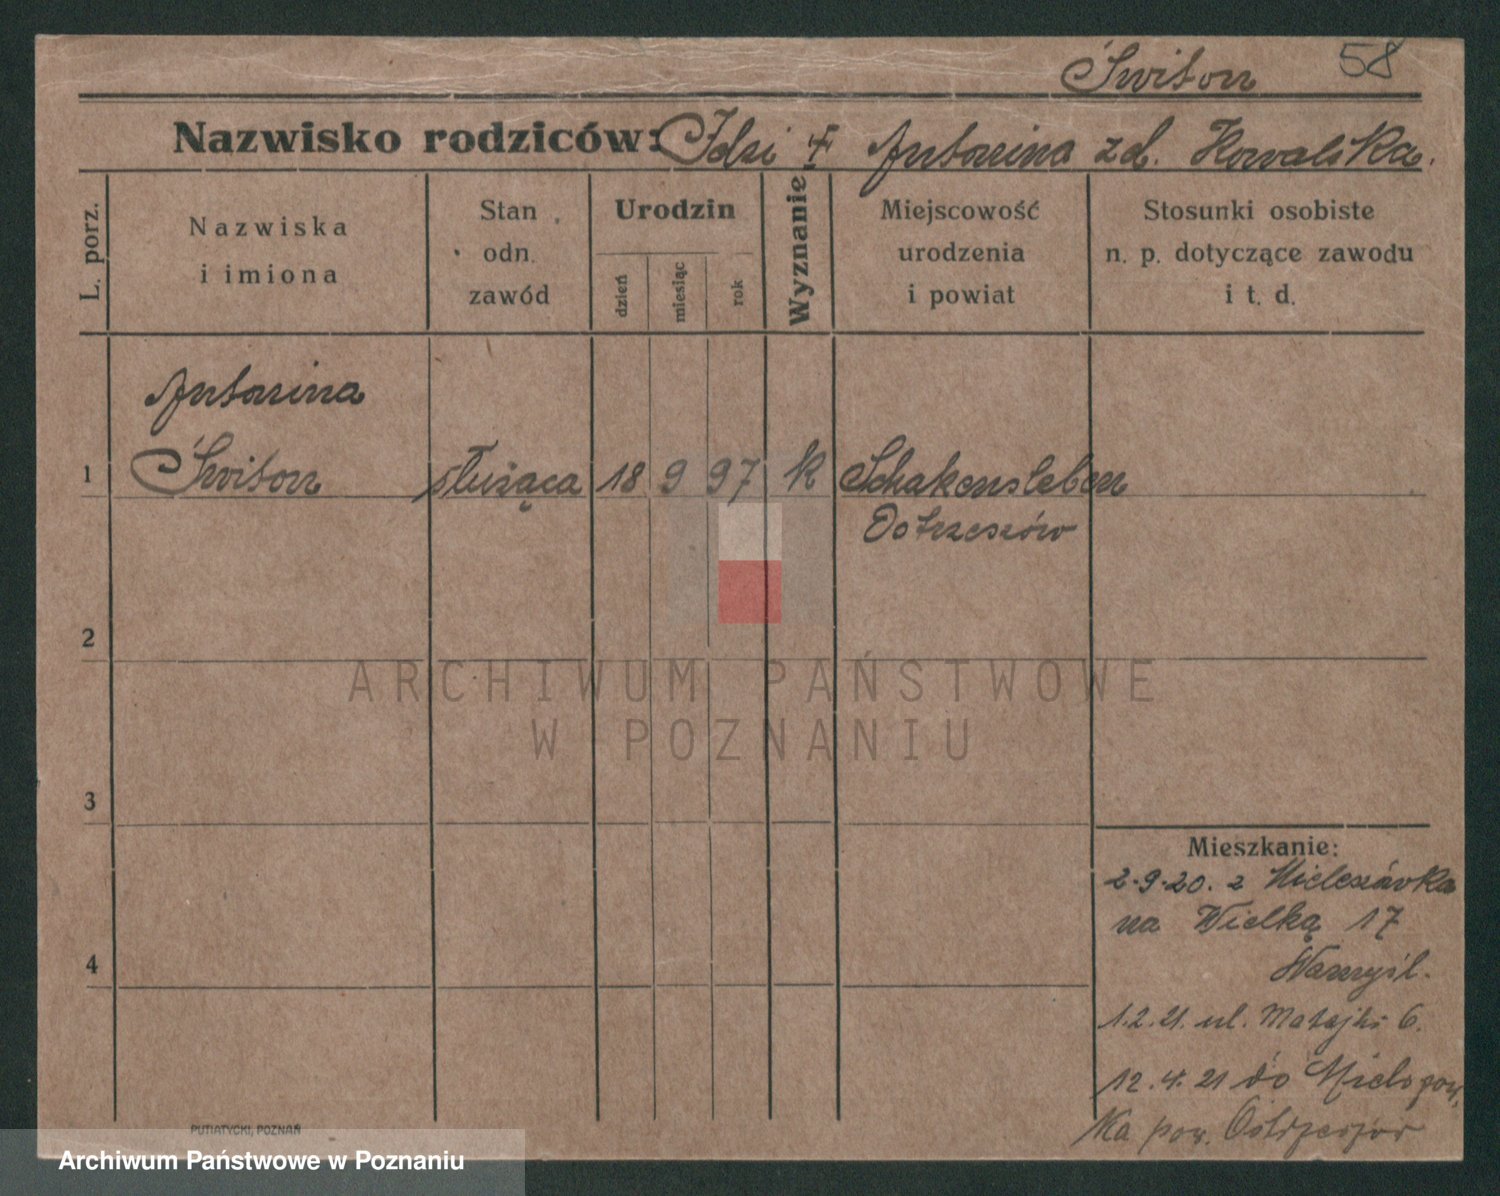 Świton 58
Nazwisko rodziców: Idzi + Antonina zd. Kowalska.
L. porz.
Nazwiska
i imiona
Stan
odn.
zawód
Urodzin
dzień
miesiąc
rok
Wyznanie
Miejscowość
urodzenia
i powiat
Stosunki osobiste
n. p. dotyczące zawodu
i t. d.
Antonina
1 Świton służąca 18 9 97 k Schakensleben
Ostrzeszów
2
ARCHIWUM PAŃSTWOWE
W POZNANIU
3
Mieszkanie:
2.9.20. z Mieleszówka
na Wielką 17
4
1.2.21. ul. Matejki 6.
12.4.21 do
ka pow. Ostrzeszów
PUTIATYCKI, POZNAŃ
Archiwum Państwowe w Poznaniu